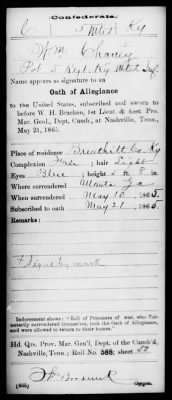 Confederate.
C 5 Mtd Ky
Wm
Pvt 5 Regt. Ky Mtd Inf.
Name appears as signature to an
Oath of Allegiance
to the United States, subscribed and sworn to
before W. H. Bracken, 1st Lieut. & Asst. Pro.
Mar. Genl., Dept. Cumb., at Nashville, Tenn.,
May 21, 1865.
Place of residence Breathitt Co Ky
Complexion Fair ; hair Light
Eyes Blue ; height 5 ft 8 in.
Where surrendered Atlanta Ga
When surrendered May 10 , 1865.
Subscribed to oath May 21 , 1865
Remarks:
Signs by mark
Indorsement shows: "Roll of Prisoners of war, who Vol-
untarily surrendered themselves, took the Oath of Allegiance,
and were allowed to return to their homes."
Hd. Qrs. Prov. Mar. Gen'l, Dept. of the Cumb'd,
Nashville, Tenn.; Roll No. 588; sheet
Copyist.